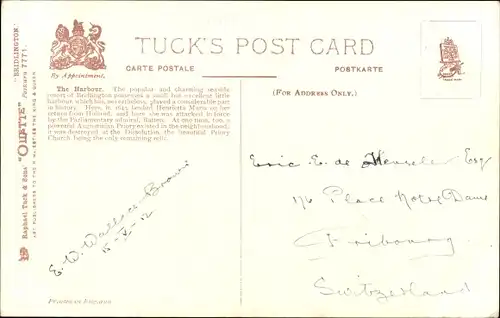 "BRIDLINGTON."
Postcard 7771.
Raphael Tuck & Sons' "OILETTE"
ART PUBLISHERS TO THEIR MAJESTIES THE KING & QUEEN
By Appointment.
TUCK'S POST CARD
CARTE POSTALE
POSTKARTE
(FOR ADDRESS ONLY.)
The Harbour. The popular and charming seaside
resort of Bridlington possesses a small but excellent little
harbour, which has, nevertheless, played a considerable part
in history. Here, in 1643, landed Henrietta Maria on her
return from Holland, and here she was attacked in force
by the Parliamentary admiral, Batten. At one time, too, a
powerful Augustinian Priory existed in the neighbourhood;
it was destroyed at the Dissolution, the beautiful Priory
Church being the only remaining relic.
E. W. Wallace Brown
15-V-12
Eric E. de Esq
1/6 Place Notre Dame
Fribourg
Switzerland